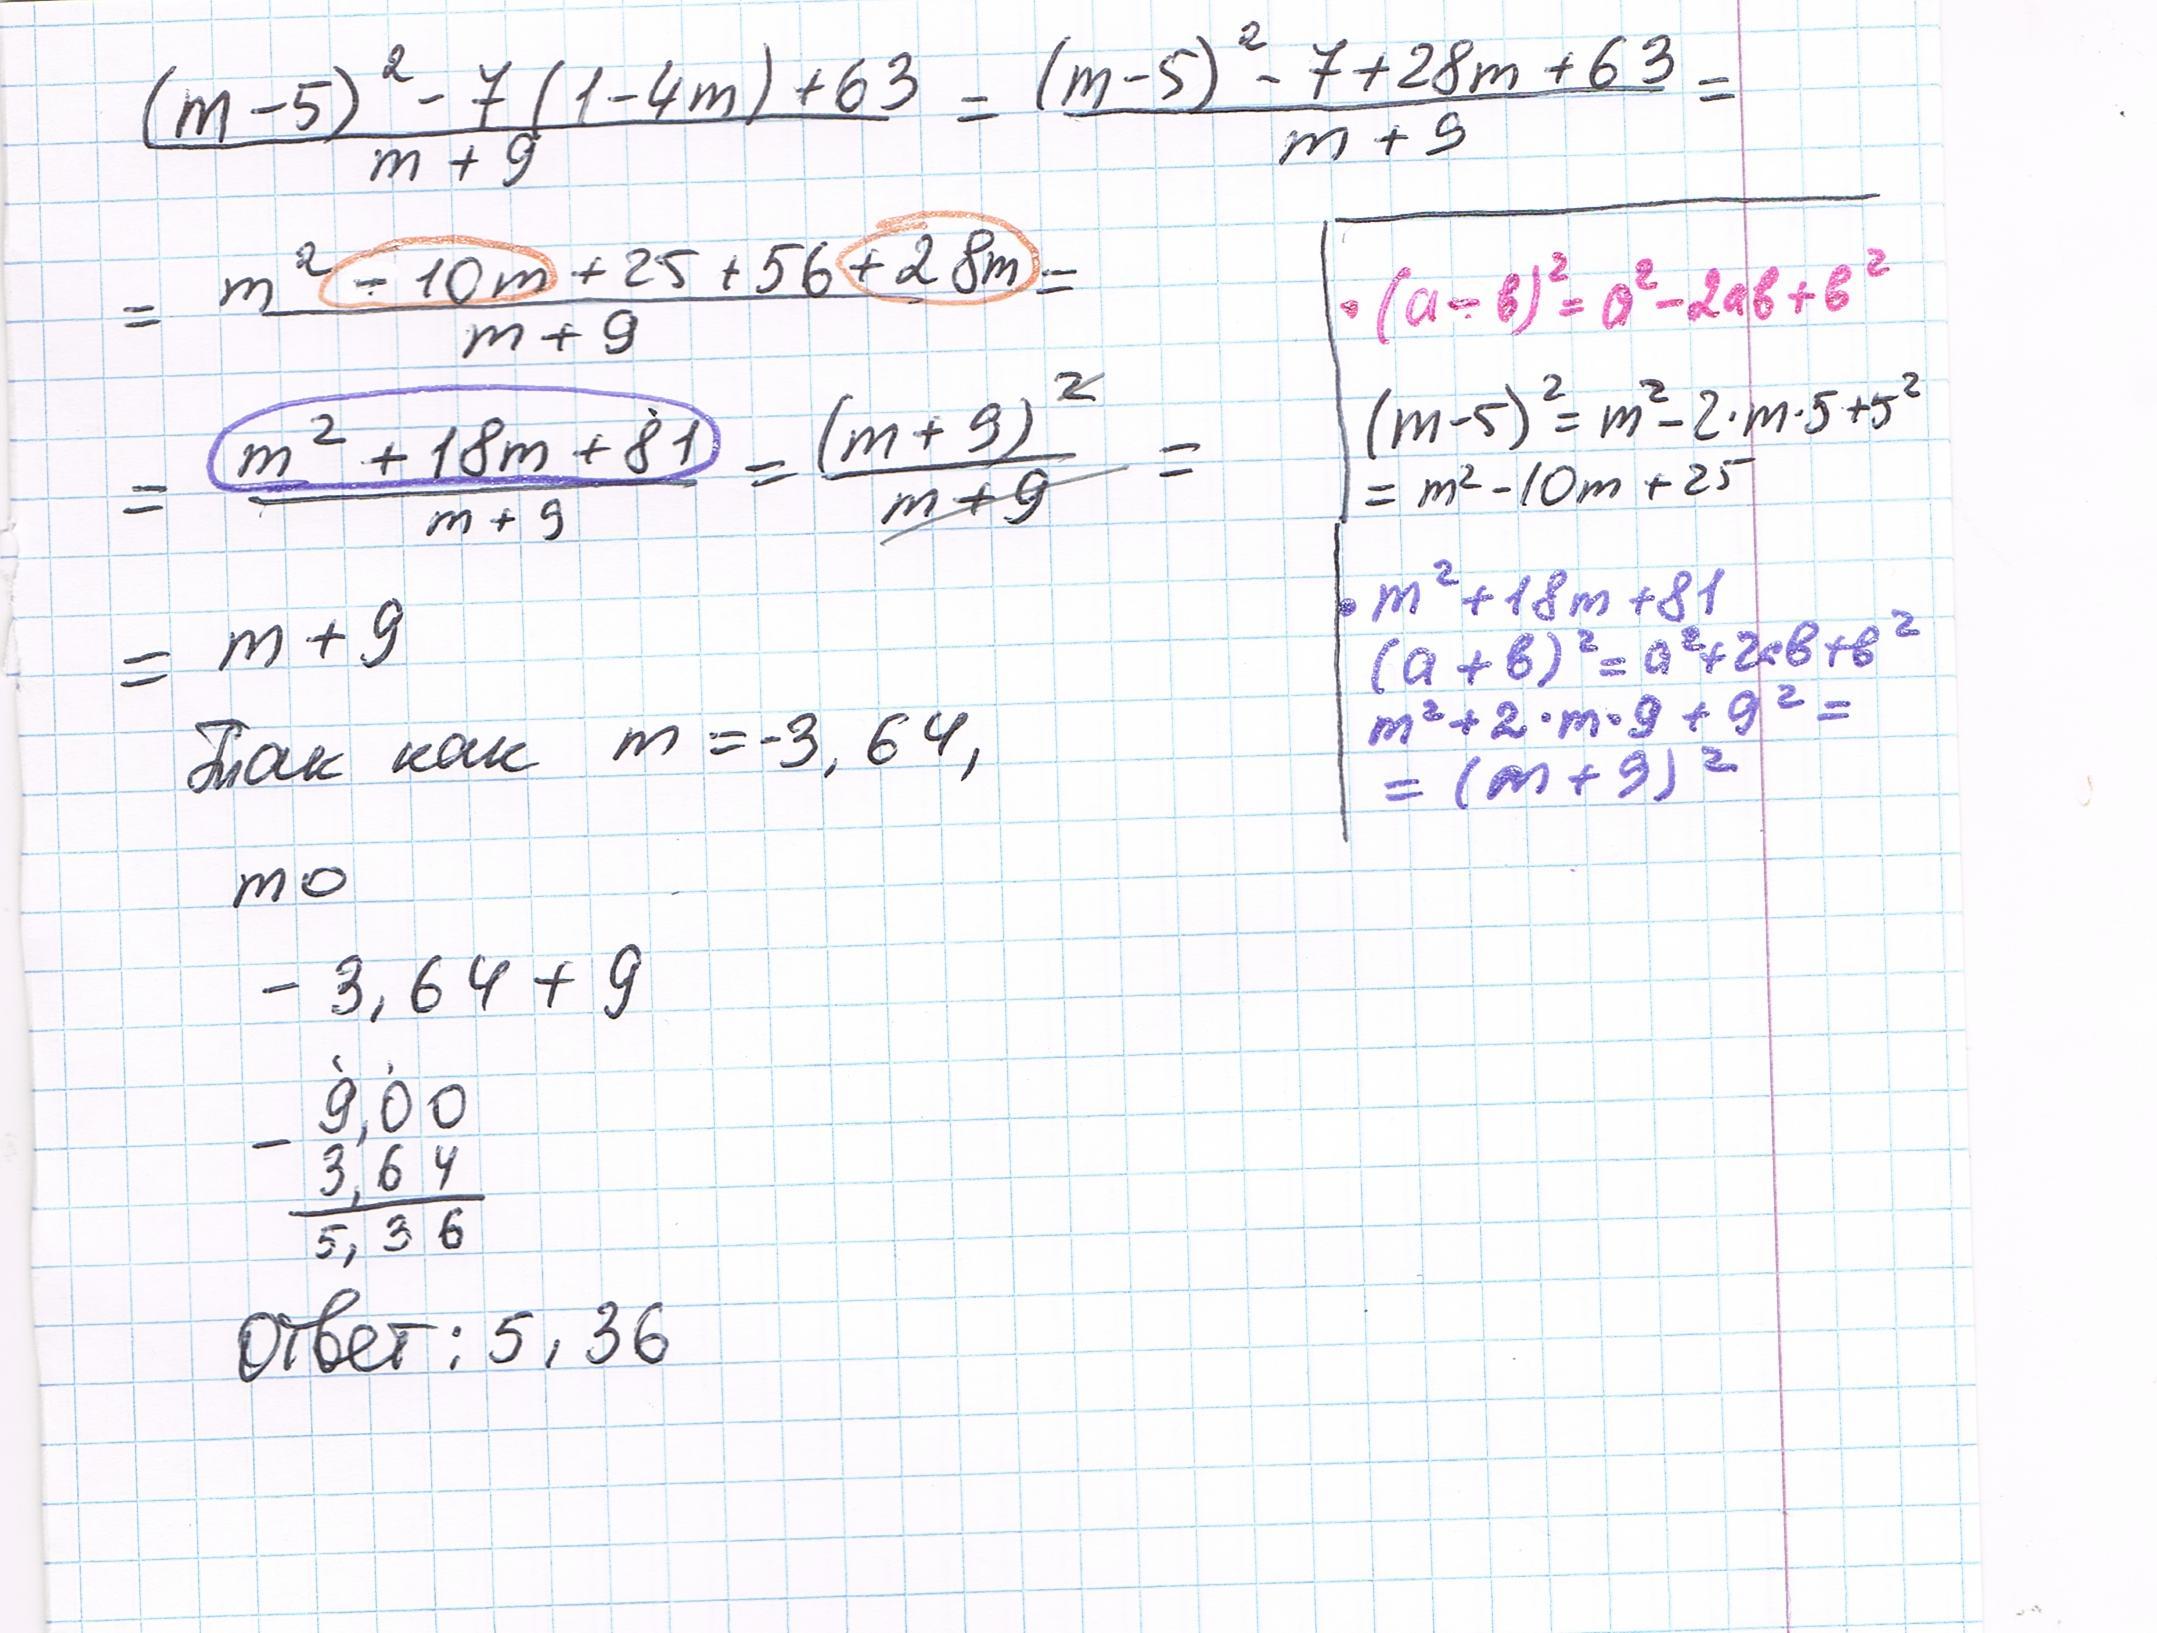 ((m-5)² - 7(1-4m) + 63)/(m+9) = ((m-5)² - 7 + 28m + 63)/(m+9) =
= (m² - 10m + 25 + 56 + 28m)/(m+9) =
= (m² + 18m + 81)/(m+9) = (m+9)²/(m+9) =
= m + 9
Так как m = -3,64,
то
-3,64 + 9
9,00
- 3,64
5,36
Ответ: 5,36
• (a-b)² = a² - 2ab + b²
(m-5)² = m² - 2·m·5 + 5²
= m² - 10m + 25
• m² + 18m + 81
(a+b)² = a² + 2ab + b²
m² + 2·m·9 + 9² =
= (m+9)²